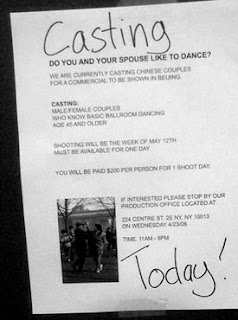 Casting
DO YOU AND YOUR SPOUSE LIKE TO DANCE?
WE ARE CURRENTLY CASTING CHINESE COUPLES
FOR A COMMERCIAL TO BE SHOWN IN BEIJING
CASTING:
MALE/FEMALE COUPLES
WHO KNOW BASIC BALLROOM DANCING
AGE 45 AND OLDER
SHOOTING WILL BE THE WEEK OF MAY 12TH
MUST BE AVAILABLE FOR ONE DAY
YOU WILL BE PAID $200 PER PERSON FOR 1 SHOOT DAY.
IF INTERESTED PLEASE STOP BY OUR
PRODUCTION OFFICE LOCATED AT
224 CENTRE ST. 2E NY, NY 10013
ON WEDNESDAY 4/23/08
TIME: 11AM - 9PM
Today!